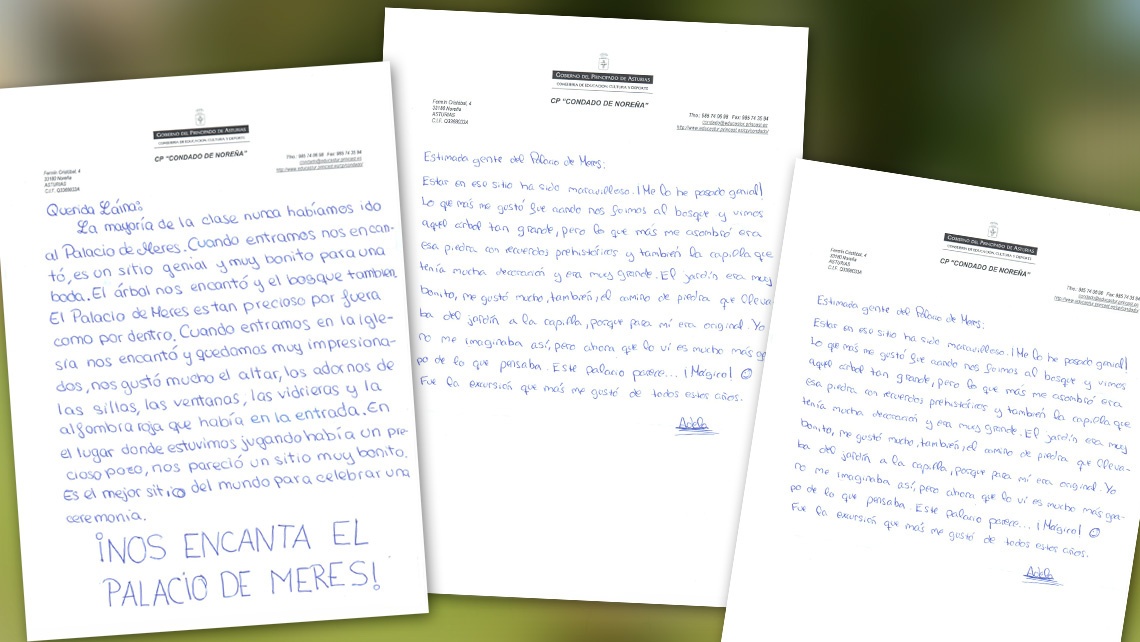 GOBIERNO DEL PRINCIPADO DE ASTURIAS
CONSEJERIA DE EDUCACION CULTURA Y DEPORTE
CP "CONDADO DE NOREÑA"
Fermín Cristóbal, 4
33180 Noreña
ASTURIAS
Tfno.: 985 74 06 98 Fax: 985 74 35 94
Querida Láina:
La mayoría de la clase nunca habíamos ido
al Palacio de Meres. Cuando entramos nos encan-
tó, es un sitio genial y muy bonito para una
boda. El árbol nos encantó y el bosque tambien
El Palacio de Meres es tan precioso por fuera
como por dentro. Cuando entramos en la igle-
sía nos encantó y quedamos muy impresiona-
dos, nos gustó mucho el altar, los adornos de
las sillas, las ventanas, las vidrieras y la
alfombra roja que había en la entrada. En
el lugar donde estuvimos jugando había un pre-
cioso pozo, nos pareció un sitio muy bonito.
Es el mejor sitio del mundo para celebrar una
ceremonia.
¡NOS ENCANTA EL
PALACIO DE MERES!
GOBIERNO DEL PRINCIPADO DE ASTURIAS
CONSEJERIA DE EDUCACION CULTURA Y DEPORTE
CP "CONDADO DE NOREÑA"
Fermín Cristóbal, 4
33180 Noreña
ASTURIAS
Tfno.: 985 74 06 98 Fax: 985 74 35 94
Estimada gente del Palacio de Meres:
Estar en ese sitio ha sido maravilloso. ¡Me lo he pasado genial!
Lo que más me gustó fue cando nos fuimos al bosque y vimos
aquel árbol tan grande, pero lo que más me asombró era
esa piedra con recuerdos prehistóricos y también la capilla que
tenía mucha decoración y era muy grande. El jardín era muy
bonito, me gustó mucho, también, el camino de piedra que lleva-
ba del jardín a la capilla, porque para mí era original. Yo
no me imaginaba así, pero ahora que lo ví es mucho más gua-
po de lo que pensaba. Este palacio parece... ¡Mágico! ☺
Fue la excursión que más me gustó de todos estos años.
Adela
GOBIERNO DEL PRINCIPADO DE ASTURIAS
CONSEJERIA DE EDUCACION CULTURA Y DEPORTE
CP "CONDADO DE NOREÑA"
Fermín Cristóbal, 4
33180 Noreña
ASTURIAS
Estimada gente del Palacio de Meres:
Estar en ese sitio ha sido maravilloso. ¡Me lo he pasado genial!
Lo que más me gustó fue cando nos fuimos al bosque y vimos
aquel árbol tan grande, pero lo que más me asombró era
esa piedra con recuerdos prehistóricos y también la capilla que
tenía mucha decoración y era muy grande. El jardín era muy
bonito, me gustó mucho, también, el camino de piedra que lleva-
ba del jardín a la capilla, porque para mí era original. Yo
no me imaginaba así, pero ahora que lo ví es mucho más gua-
po de lo que pensaba. Este palacio parece... ¡Mágico! ☺
Fue la excursión que más me gustó de todos estos años.
Adela